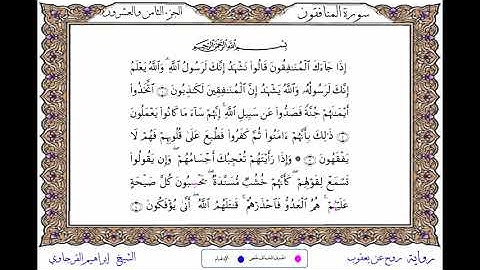 سورة المنافقون
الجزء الثامن والعشرون
بسم الله الرحمن الرحيم
إِذَا جَاءَكَ الْمُنَافِقُونَ قَالُوا نَشْهَدُ إِنَّكَ لَرَسُولُ اللَّهِ وَاللَّهُ يَعْلَمُ
إِنَّكَ لَرَسُولُهُ وَاللَّهُ يَشْهَدُ إِنَّ الْمُنَافِقِينَ لَكَاذِبُونَ ١ اتَّخَذُوا
أَيْمَانَهُمْ جُنَّةً فَصَدُّوا عَن سَبِيلِ اللَّهِ إِنَّهُمْ سَاءَ مَا كَانُوا يَعْمَلُونَ
٢ ذَلِكَ بِأَنَّهُمْ ءَامَنُوا ثُمَّ كَفَرُوا فَطُبِعَ عَلَى قُلُوبِهِمْ فَهُمْ لَا
يَفْقَهُونَ ٣ ۞ وَإِذَا رَأَيْتَهُمْ تُعْجِبُكَ أَجْسَامُهُمْ وَإِن يَقُولُوا
تَسْمَعْ لِقَوْلِهِمْ كَأَنَّهُمْ خُشُبٌ مُّسَنَّدَةٌ يَحْسِبُونَ كُلَّ صَيْحَةٍ
عَلَيْهِمْ هُمُ الْعَدُوُّ فَاحْذَرْهُمْ قَاتَلَهُمُ اللَّهُ أَنَّى يُؤْفَكُونَ ٤
رواية روح عن يعقوب
الشيخ إبراهيم الفرجاوي